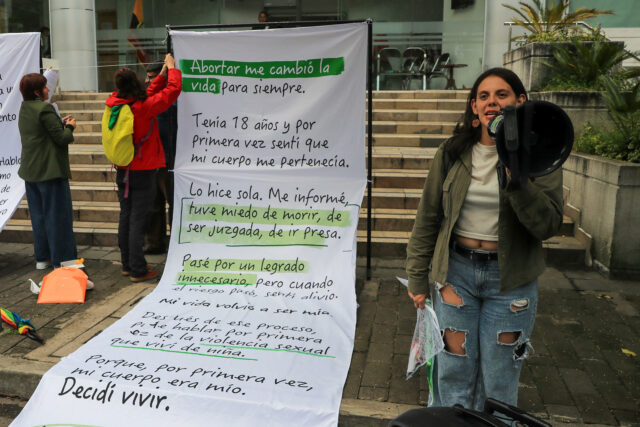 Abortar me cambió la
vida para siempre.
Tenía 18 años y por
primera vez sentí que
mi cuerpo me pertenecía.
Lo hice sola. Me informé,
tuve miedo de morir, de
ser juzgada, de ir presa.
Pasé por un legrado
innecesario, pero cuando
el riesgo pasó, sentí alivio.
Mi vida volvía a ser mía.
Después de ese proceso,
Pude hablar por primera
vez de la violencia sexual
que viví de niña.
Porque, por primera vez,
mi cuerpo era mío.
Decidí vivir.